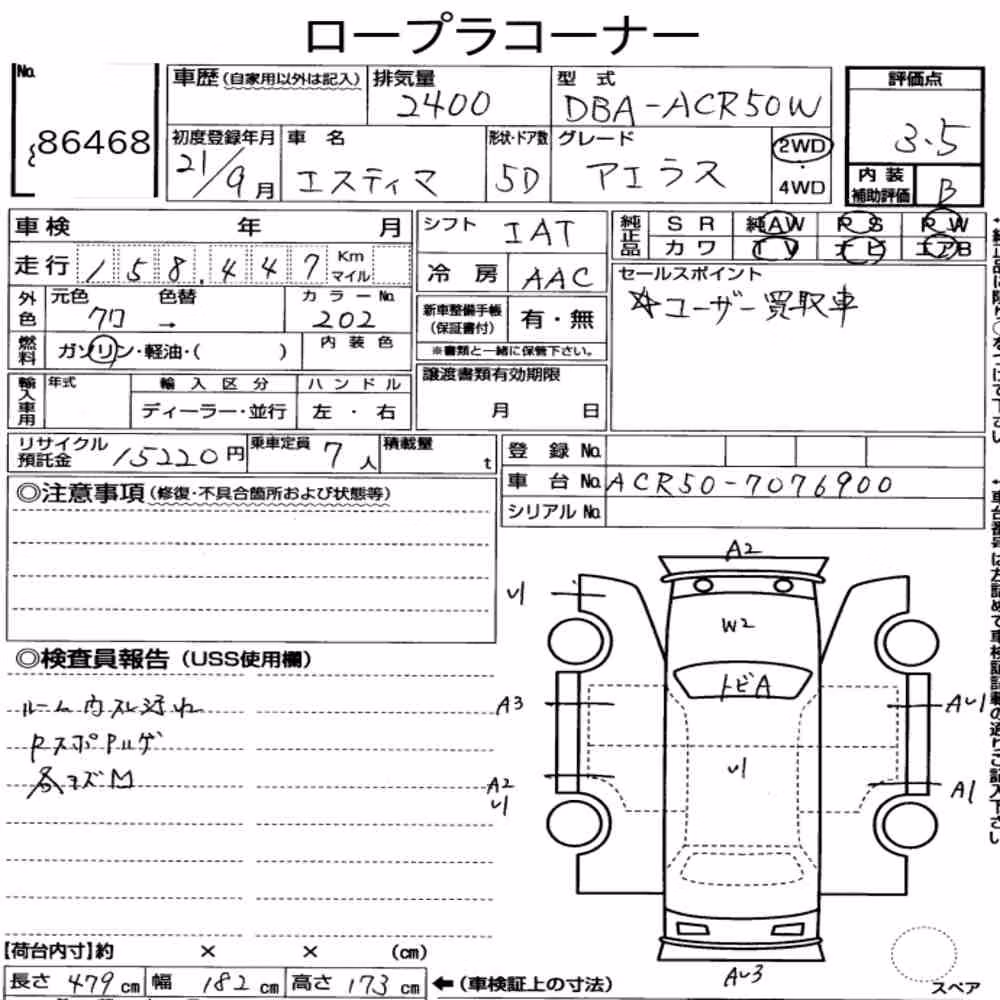 ロープラコーナー
No.
86468
車歴 (自家用以外は記入)
排気量
2400
型式
DBA-ACR50W
評価点
3.5
初度登録年月
21/9月
車名
エスティマ
形状・ドア数
5D
グレード
アエラス
2WD
・
4WD
内装
補助評価
B
車検 年 月
シフト
IAT
純正品
SR 純AW PS PW
カワ TV ナビ エアB
走行 158,447 Km
マイル
冷房
AAC
セールスポイント
☆ユーザー買取車
外色
元色 色替
クロ →
カラーNo.
202
新車整備手帳
(保証書付)
有・無
※書類と一緒に保管下さい。
燃料
ガソリン・軽油・( )
内装色
譲渡書類有効期限
月 日
輸入車用
年式
輸入区分
ディーラー・並行
ハンドル
左・右
リサイクル
預託金
15220円
乗車定員
7人
積載量
t
登録No.
車台No. ACR50-7076900
シリアルNo.
◎注意事項 (修復・不具合箇所および状態等)
◎検査員報告 (USS使用欄)
ルーム内スレ汚れ
各キズ凹
A2
U1
W2
トビA
A3
AU1
U1
A2
U1
A1
AU3
スペア
【荷台内寸】約 × × (cm)
長さ 479 cm 幅 182 cm 高さ 173 cm
←(車検証上の寸法)